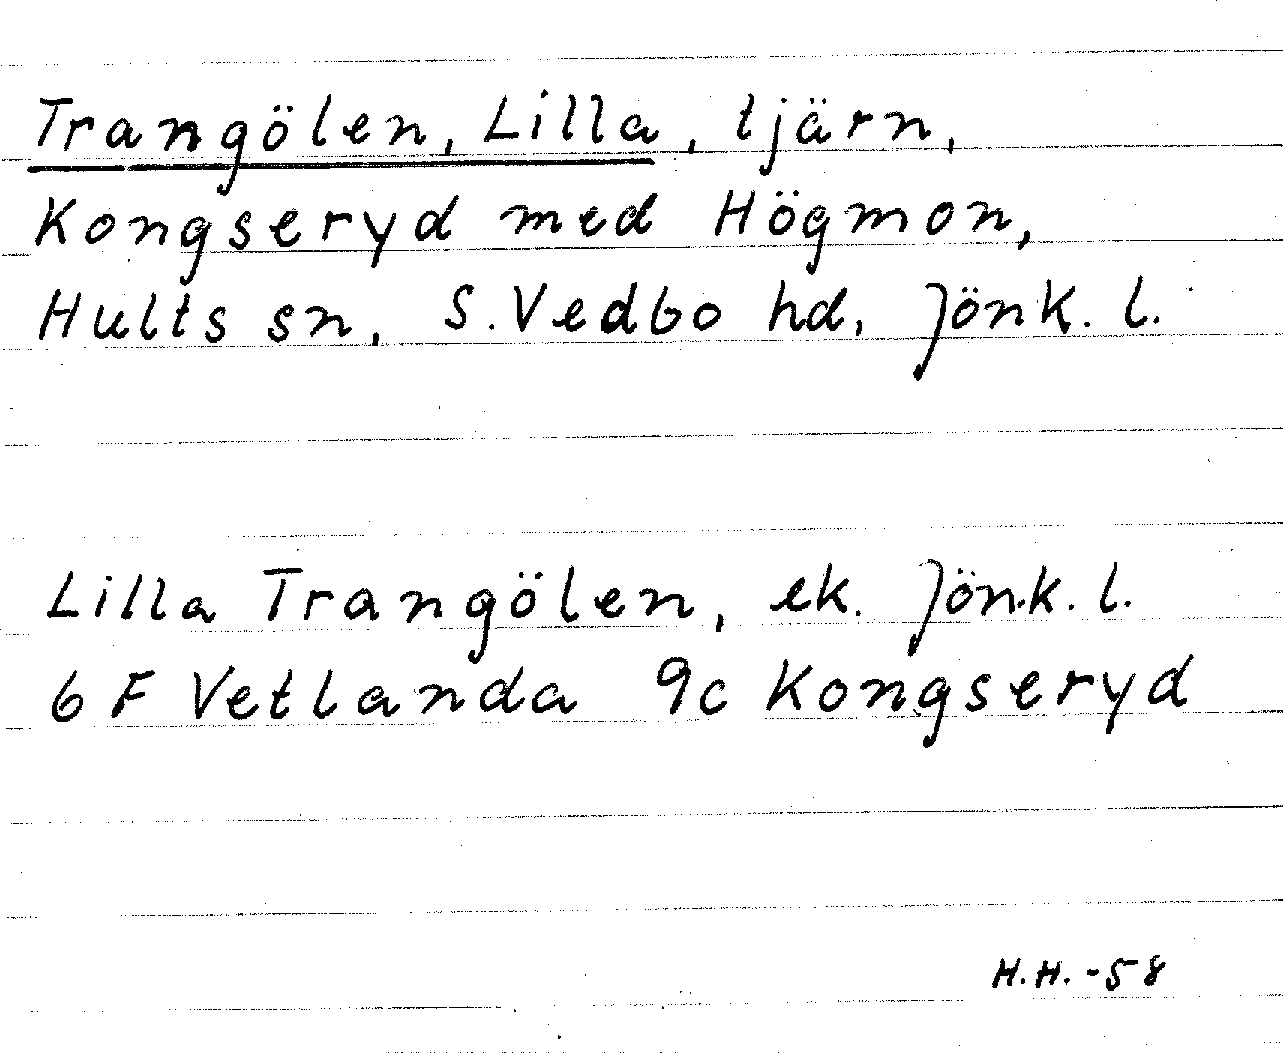 Trangölen, Lilla, tjärn,
Kongseryd med Högmon,
Hults sn, S. Vedbo hd, Jönk. l.
Lilla Trangölen, ek. Jönk. l.
6 F Vetlanda 9c Kongseryd
H.H. -58